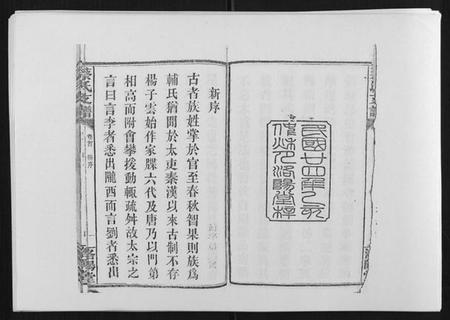 民國廿四年乙亥
洛陽堂梓
新序
古者族姓掌於官至春秋智果則族爲
輔氏猶聞於太吏秦漢以來古制不存
楊子雲始作家牒六代及唐乃以門第
相高而附會攀援動輒疏舛故太宗之
言曰言李者悉出隴西而言劉者悉出
氏支譜
卷首
新序